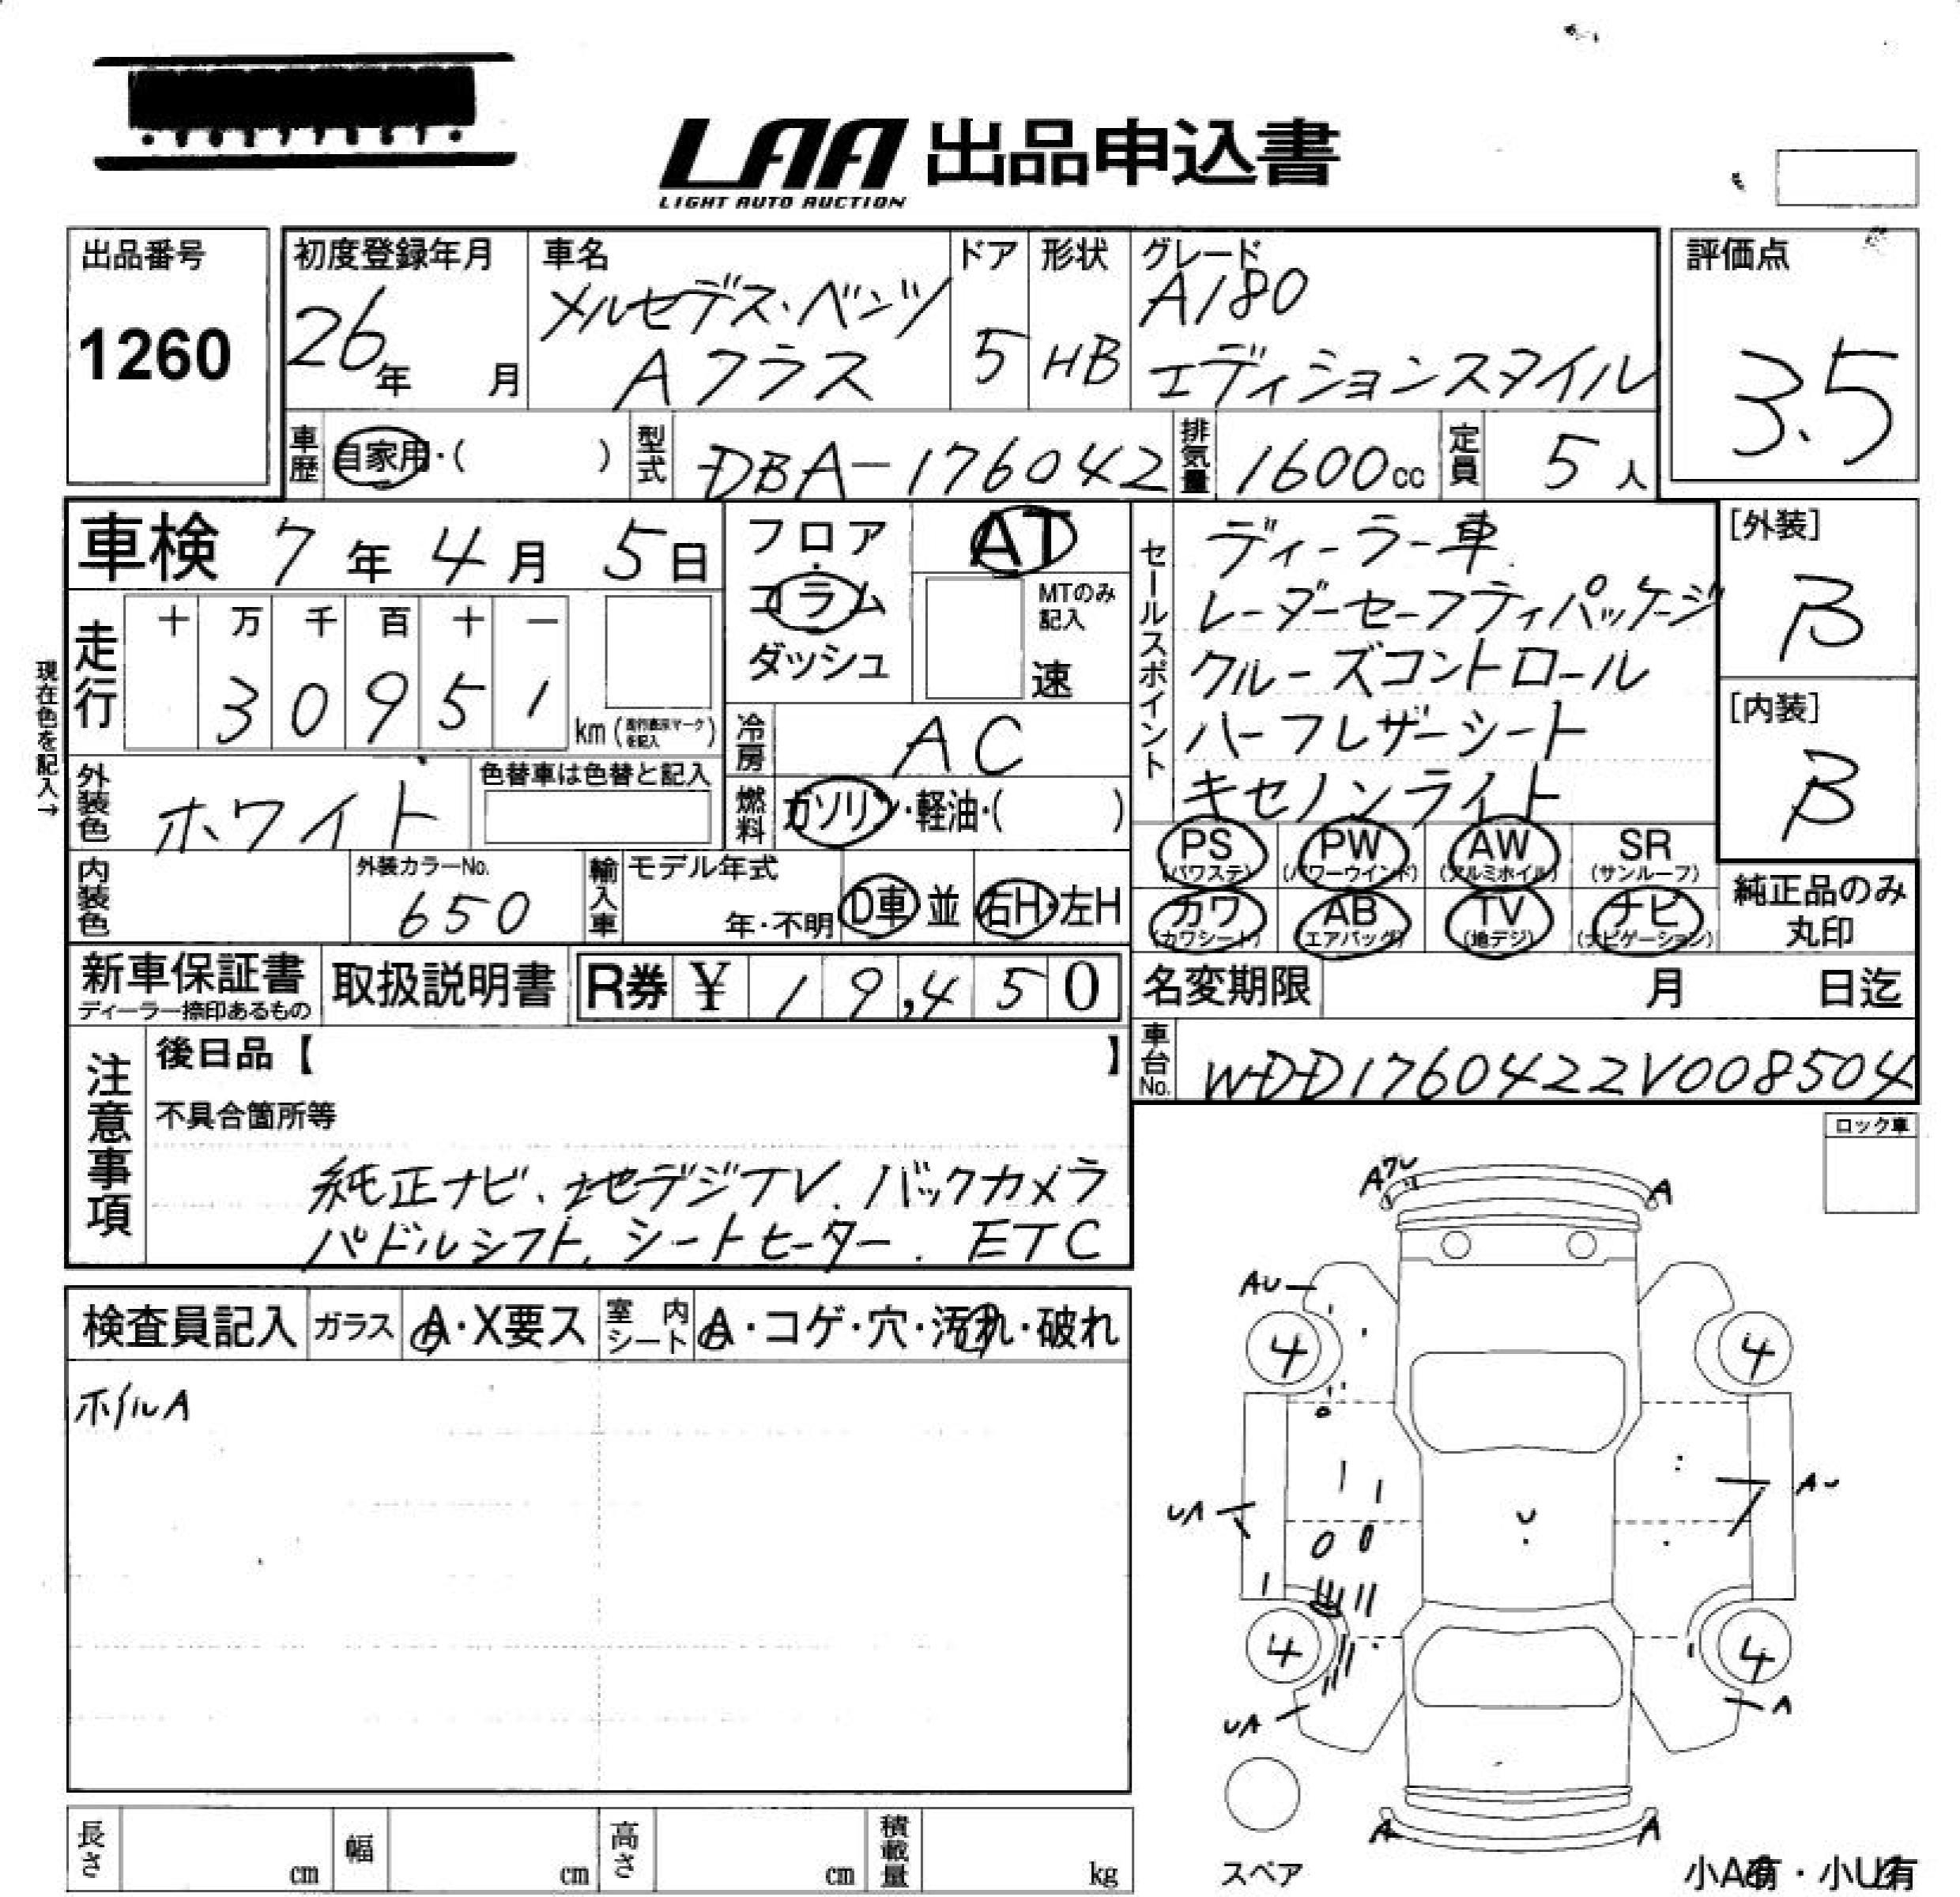 LAA 出品申込書
LIGHT AUTO AUCTION
出品番号
1260
初度登録年月
26年 月
車名
メルセデス・ベンツ
Aクラス
ドア
5
形状
HB
グレード
A180
エディションスタイル
評価点
3.5
車歴 自家用・( )
型式 DBA-176042
排気量 1600cc
定員 5人
車検 7年4月5日
フロア・コラム
ダッシュ
AT
MTのみ
記入
速
セールスポイント
ディーラー車
レーダーセーフティパッケージ
クルーズコントロール
ハーフレザーシート
キセノンライト
[外装]
B
[内装]
B
現在色を記入→
走行
十 万 千 百 十 一
3 0 9 5 1
km
冷房 AC
外装色 ホワイト
色替車は色替と記入
燃料 ガソリン・軽油・( )
PS PW AW SR
(パワステ) (パワーウインド) (アルミホイル) (サンルーフ)
カワ AB TV ナビ
(カワシート) (エアバッグ) (地デジ) (ナビゲーション)
純正品のみ
丸印
内装色
外装カラーNo.
650
輸入車
モデル年式
年・不明
D車 並
右H・左H
新車保証書
ディーラー捺印あるもの
取扱説明書
R券 ¥ 19,450
名変期限 月 日迄
車台No. WDD1760422V008504
注意事項
後日品【 】
不具合箇所等
純正ナビ、地デジTV、バックカメラ
パドルシフト、シートヒーター、ETC
ロック車
検査員記入
ガラス A・X要ス
室内シート A・コゲ・穴・汚れ・破れ
ホイルA
A ワレ
A
AU
4 4
UA
AU
U
4 4
UA
A
A A
スペア
長さ cm
幅 cm
高さ cm
積載量 kg
小A有・小U有